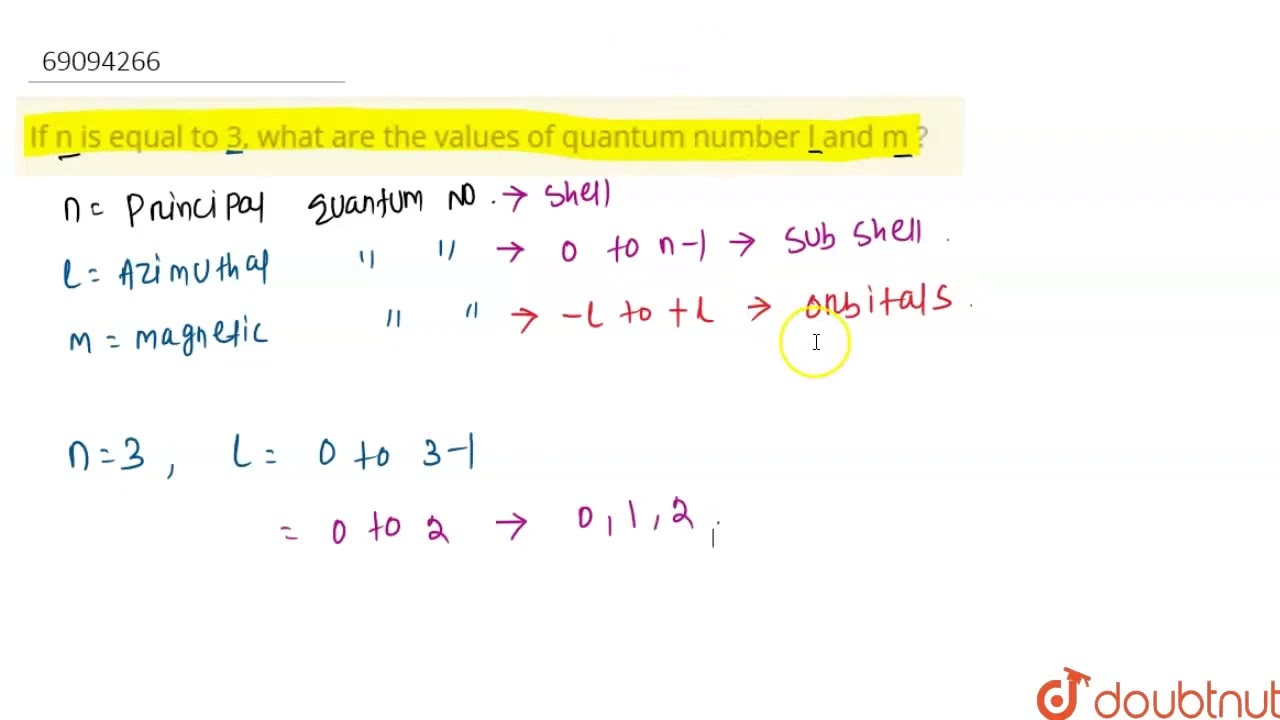 69094266
If n is equal to 3, what are the values of quantum number l and m ?
n = Principal quantum no. → shell
l = Azimuthal " " → 0 to n-1 → sub shell.
m = magnetic " " → -l to +l → orbitals.
n = 3, l = 0 to 3-1
= 0 to 2 → 0, 1, 2,
doubtnut